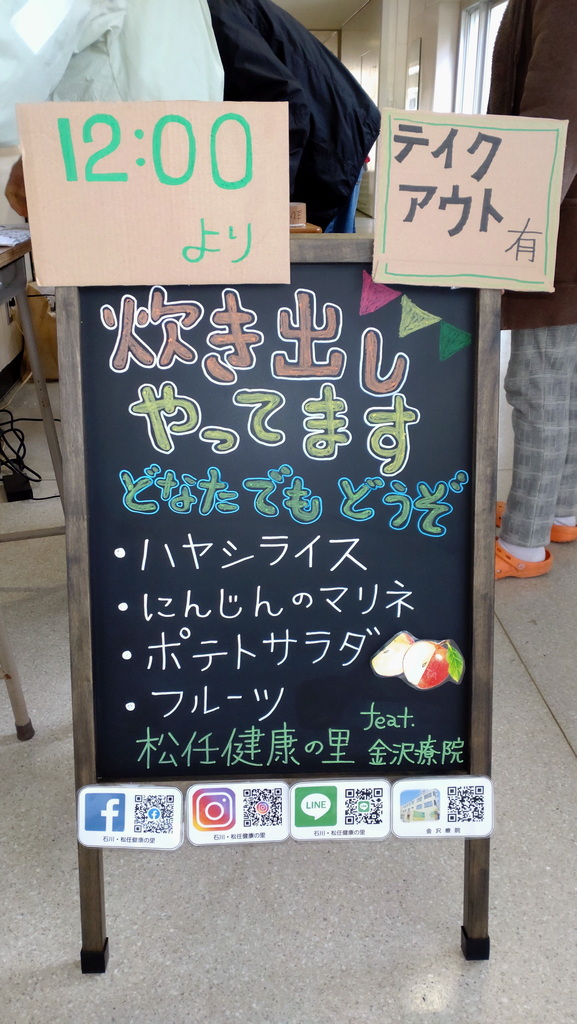 12:00
より
テイク
アウト
有
炊き出し
やってます
どなたでも どうぞ
・ハヤシライス
・にんじんのマリネ
・ポテトサラダ
・フルーツ
松任健康の里 feat. 金沢療院
石川・松任健康の里
石川・松任健康の里
LINE
石川・松任健康の里
金沢療院